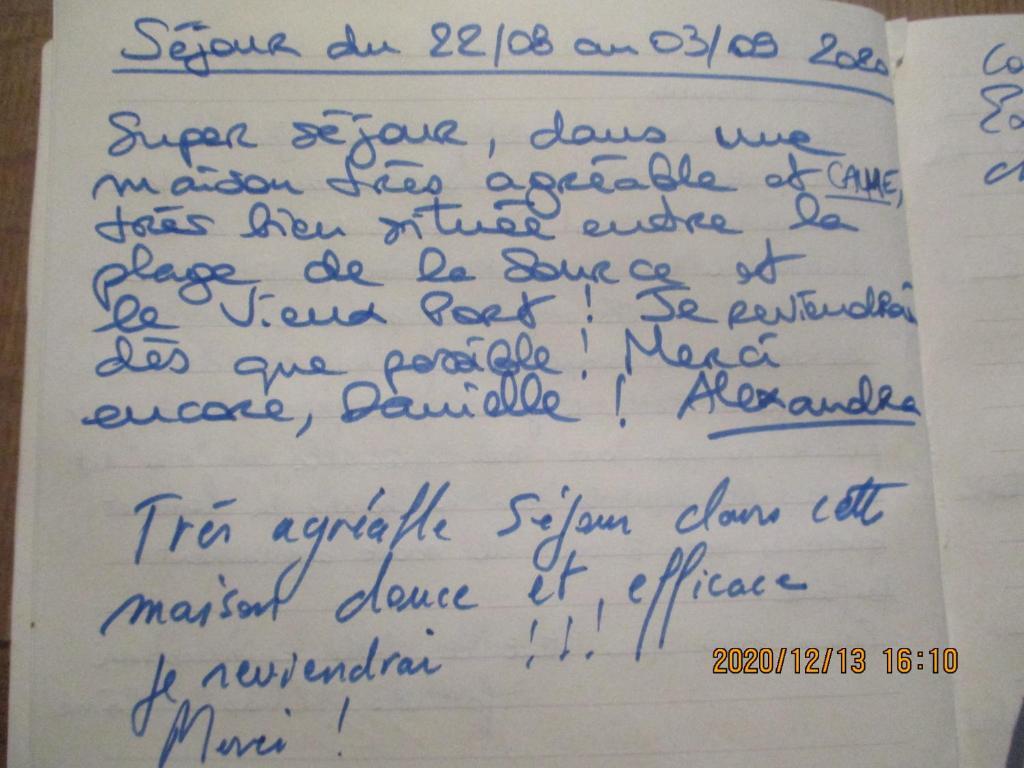 Séjour du 22/08 au 03/09 2020
Super séjour, dans une
maison très agréable et CALME,
très bien située entre la
plage de la Source et
le Vieux Port ! Je reviendrai
dès que possible ! Merci
encore, Danielle ! Alexandra
Très agréable séjour dans cette
maison douce et, efficace
je reviendrai !!!
Merci !
2020/12/13 16:10